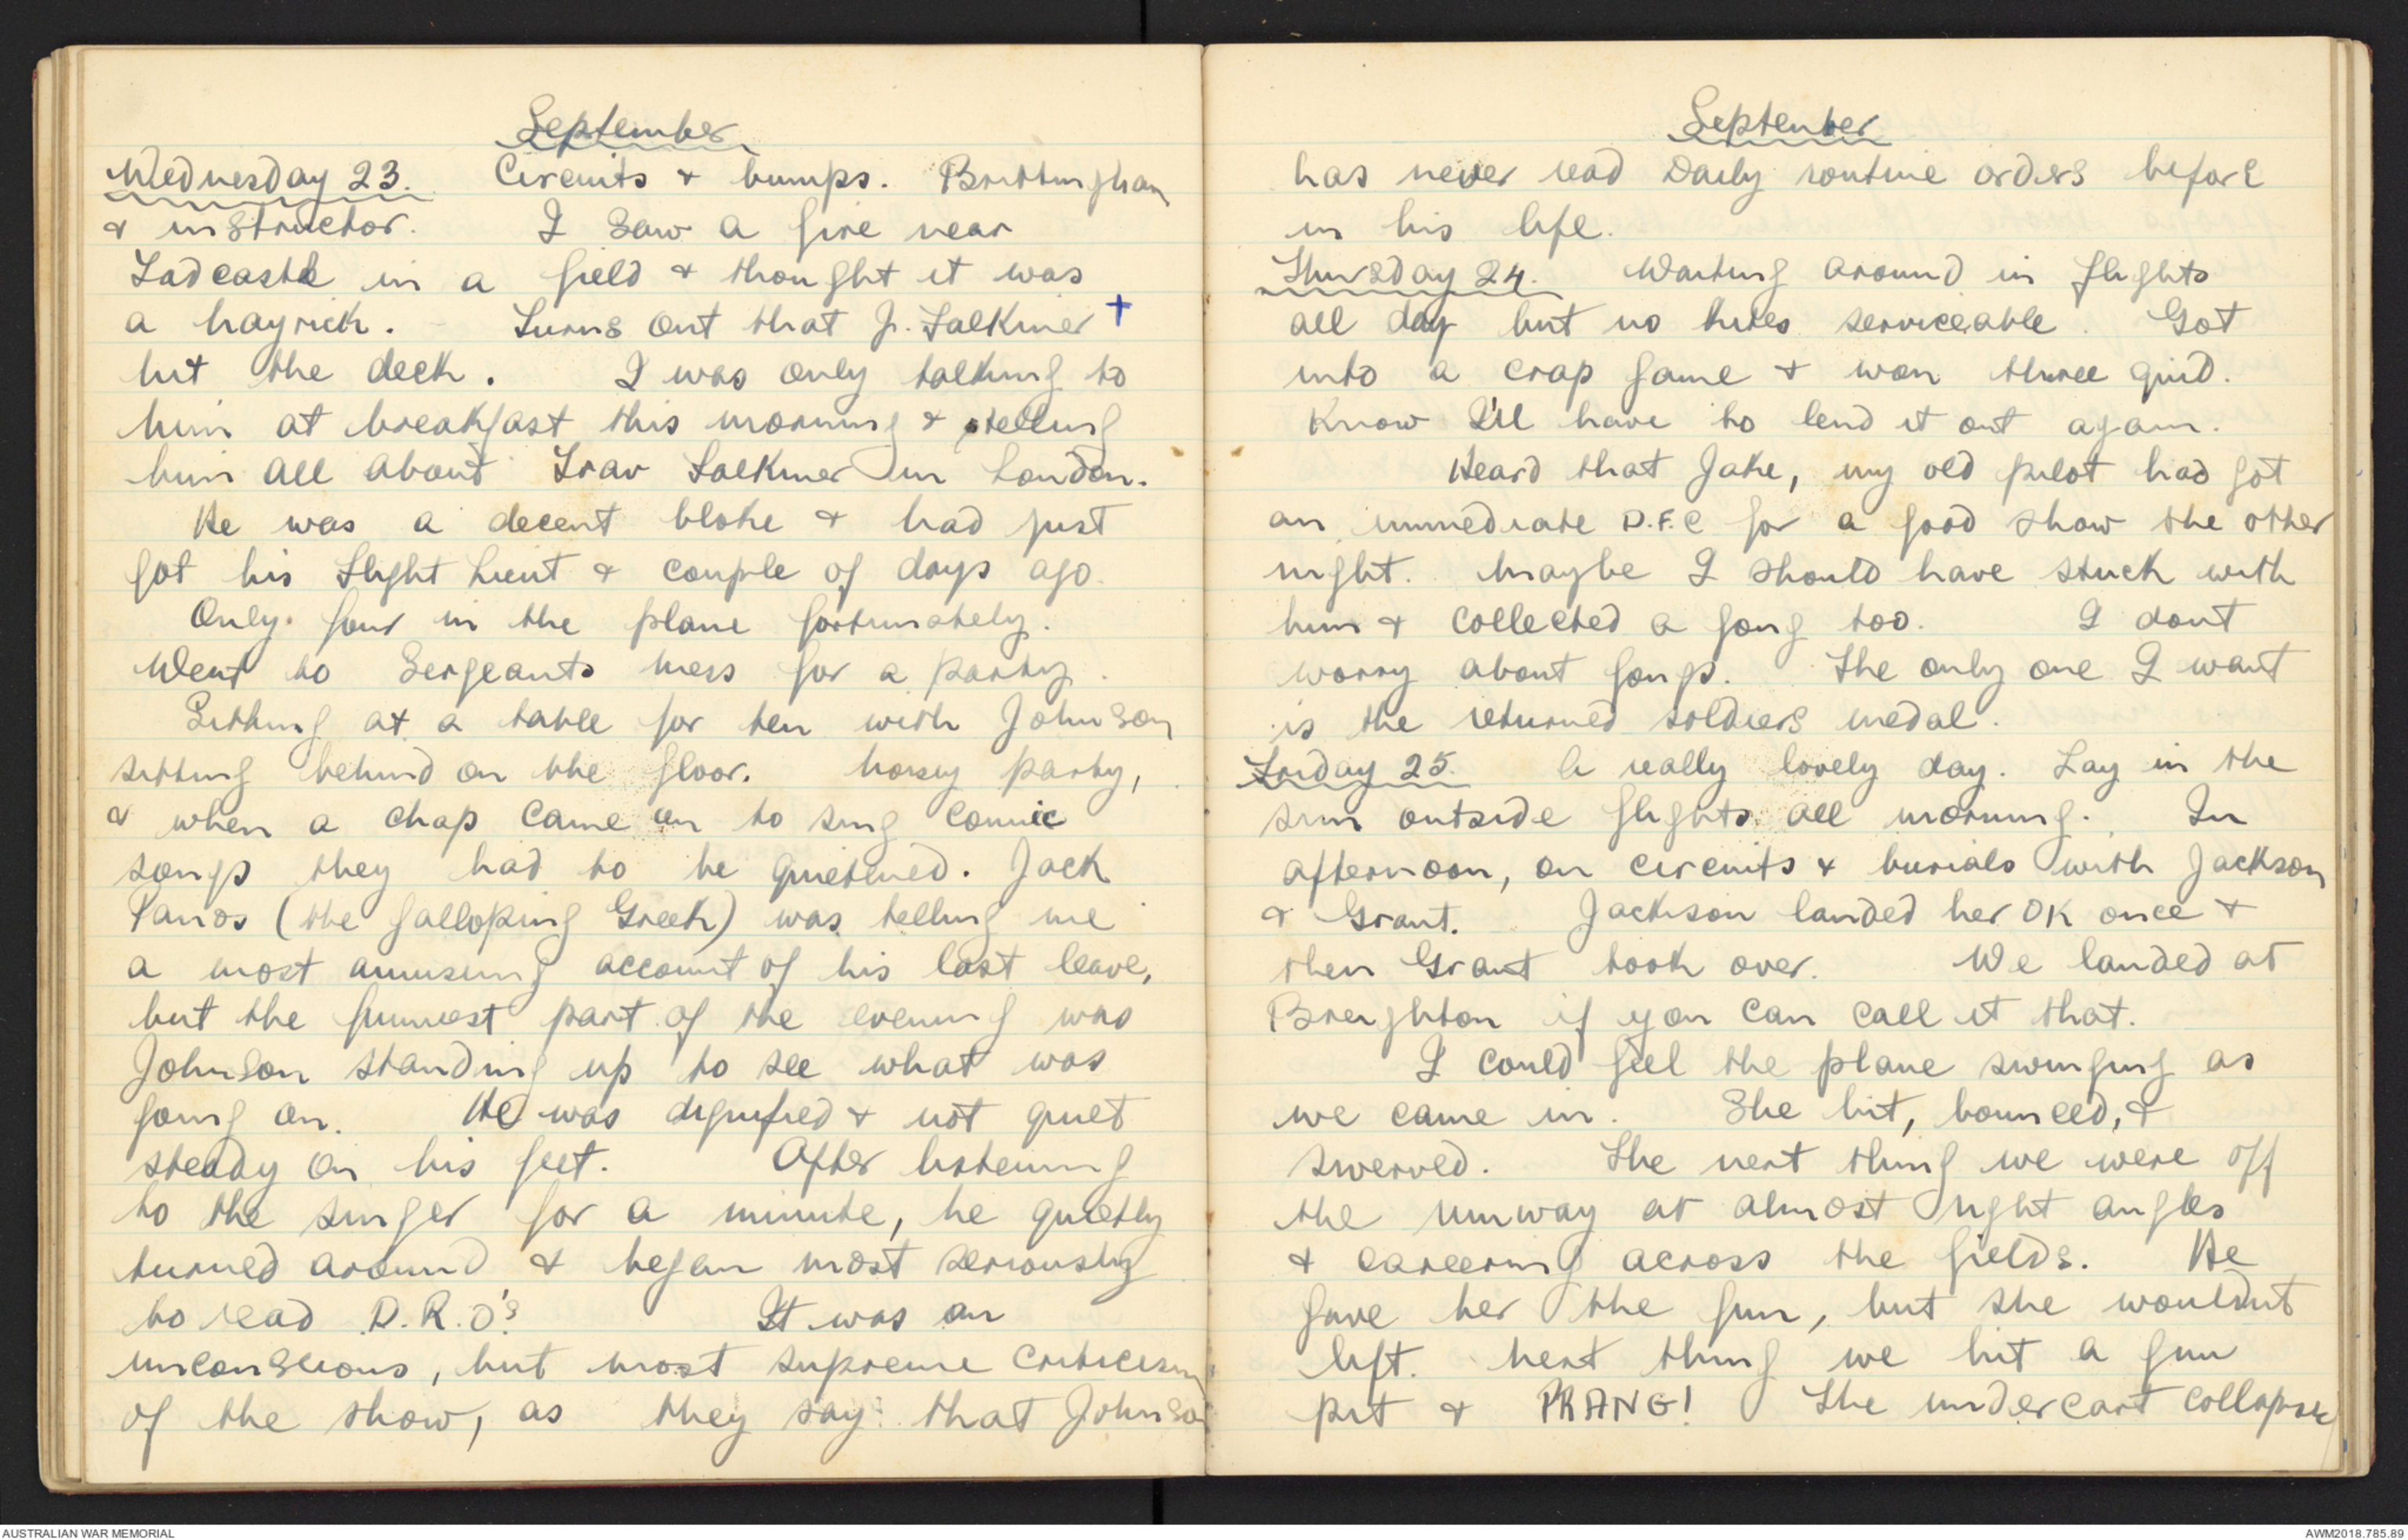 September
Wednesday 23. Circuits & bumps. Brittingham
& instructor. I saw a fire near
Tadcaster in a field & thought it was
a hayrick. Turns out that J. Falkiner +
hit the deck. I was only talking to
him at breakfast this morning & telling
him all about Trav Falkiner in London.
He was a decent bloke & had just
got his Flight Lieut a couple of days ago.
Only four in the plane fortunately.
Went to Sergeants mess for a party.
Sitting at a table for ten with Johnson
sitting behind on the floor. Noisy party,
& when a chap came on to sing comic
songs they had to be quietened. Jack
Panos (the galloping Greek) was telling me
a most amusing account of his last leave,
but the funniest part of the evening was
Johnson standing up to see what was
going on. He was dignified & not quiet
steady on his feet. After listening
to the singer for a minute, he quietly
turned around & began most seriously
to read D.R.O's. It was an
unconscious, but most supreme criticism
of the show, as they say that Johnson
September
has never read Daily routine orders before
in his life.
Thursday 24. Waiting around in flights
all day but no kites serviceable. Got
into a crap game & won three quid.
Know I'll have to lend it out again.
Heard that Jake, my old pilot had got
an immediate D.F.C for a good show the other
night. Maybe I should have stuck with
him & collected a gong too. I dont
worry about gongs. The only one I want
is the returned soldiers medal.
Friday 25. A really lovely day. Lay in the
sun outside flights all morning. In
afternoon, on circuits & burials with Jackson
& Grant. Jackson landed her OK once &
then Grant took over. We landed at
Breighton if you can call it that.
I could feel the plane swinging as
we came in. She hit, bounced, &
swerved. The next thing we were off
the runway at almost right angles
& careering across the fields. He
gave her the gun, but she wouldnt
lift. Next thing we hit a gun
pit & PRANG! The undercart collapsed
AUSTRALIAN WAR MEMORIAL
AWM2018.785.89